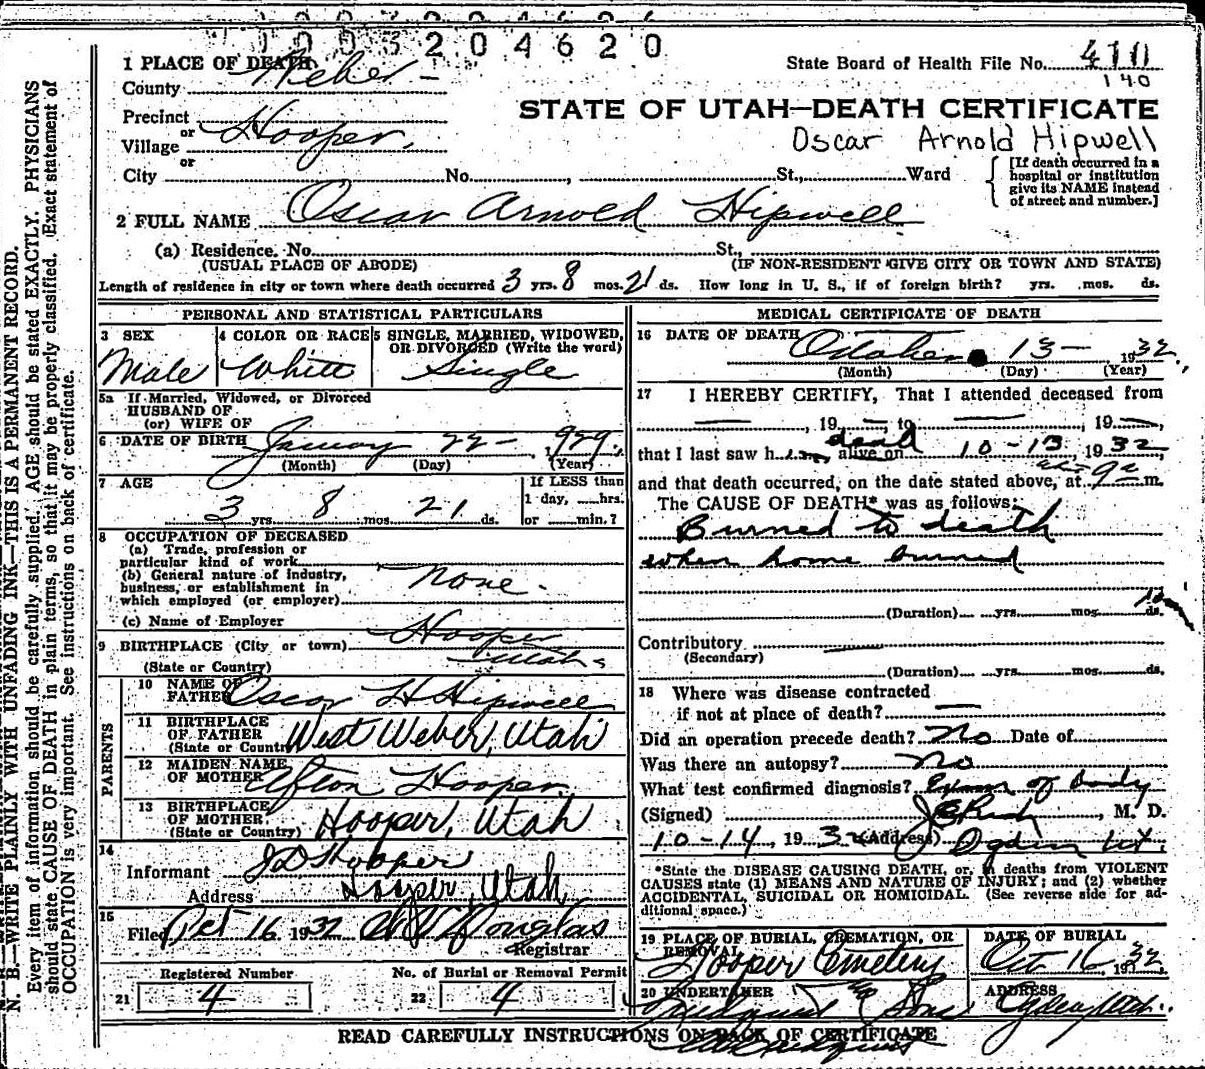 1003204620
1 PLACE OF DEATH
County Weber
State Board of Health File No. 410
140
STATE OF UTAH—DEATH CERTIFICATE
Precinct
or
Village Hooper
or
Oscar Arnold Hipwell
City No. , St., Ward
[If death occurred in a
hospital or institution
give its NAME instead
of street and number.]
2 FULL NAME Oscar Arnold Hipwell
(a) Residence. No. St.,
(USUAL PLACE OF ABODE) (IF NON-RESIDENT GIVE CITY OR TOWN AND STATE)
Length of residence in city or town where death occurred 3 yrs. 8 mos. 21 ds. How long in U. S., if of foreign birth? yrs. mos. ds.
PERSONAL AND STATISTICAL PARTICULARS
3 SEX
Male
4 COLOR OR RACE
White
5 SINGLE, MARRIED, WIDOWED,
OR DIVORCED (Write the word)
Single
5a If Married, Widowed, or Divorced
HUSBAND OF
(or) WIFE OF
6 DATE OF BIRTH January 22 - , 1929.
(Month) (Day) (Year)
7 AGE
3 yrs. 8 mos. 21 ds.
If LESS than
1 day, hrs.
or min.?
8 OCCUPATION OF DECEASED
(a) Trade, profession or
particular kind of work
(b) General nature of industry,
business, or establishment in
which employed (or employer)
None -
(c) Name of Employer
9 BIRTHPLACE (City or town) Hooper
(State or Country) Utah
PARENTS
10 NAME OF
FATHER Oscar H Hipwell
11 BIRTHPLACE
OF FATHER
(State or Country) West Weber, Utah
12 MAIDEN NAME
OF MOTHER Afton Hooper
13 BIRTHPLACE
OF MOTHER
(State or Country) Hooper, Utah
14
Informant J D Hooper
Address Hooper, Utah
15
Filed Oct 16 1932 Douglas
Registrar
Registered Number
21 4
No. of Burial or Removal Permit
22 4
MEDICAL CERTIFICATE OF DEATH
16 DATE OF DEATH October 13 - , 1932,
(Month) (Day) (Year)
17 I HEREBY CERTIFY, That I attended deceased from
— , 19 — , to — , 19 —
that I last saw him dead alive on 10-13, 1932,
and that death occurred, on the date stated above, at 9 m.
The CAUSE OF DEATH* was as follows:
Burned to death
when home burned
(Duration) yrs. mos. ds.
Contributory —
(Secondary)
(Duration) yrs. mos. ds.
18 Where was disease contracted
if not at place of death? —
Did an operation precede death? No Date of
Was there an autopsy? No
What test confirmed diagnosis? Exam of body
(Signed) , M. D.
10-14, 1932 (Address) Ogden Ut
*State the DISEASE CAUSING DEATH, or, in deaths from VIOLENT
CAUSES state (1) MEANS AND NATURE OF INJURY; and (2) whether
ACCIDENTAL, SUICIDAL OR HOMICIDAL. (See reverse side for ad-
ditional space.)
19 PLACE OF BURIAL, CREMATION, OR
REMOVAL
Hooper Cemetery
DATE OF BURIAL
Oct 16, 1932
20 UNDERTAKER
& Sons
ADDRESS
Ogden, Utah.
READ CAREFULLY INSTRUCTIONS ON BACK OF CERTIFICATE
N. B.—WRITE PLAINLY WITH UNFADING INK—THIS IS A PERMANENT RECORD.
Every item of information should be carefully supplied. AGE should be stated EXACTLY. PHYSICIANS
should state CAUSE OF DEATH in plain terms, so that it may be properly classified. Exact statement of
OCCUPATION is very important. See instructions on back of certificate.